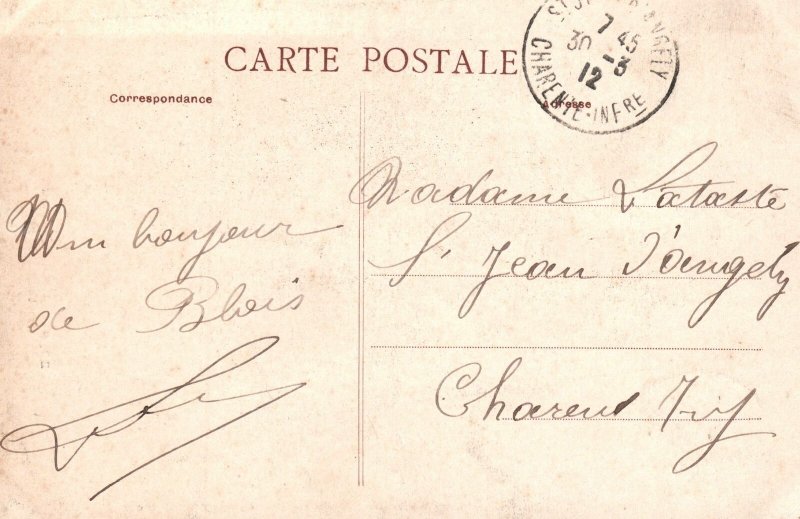 CARTE POSTALE
Correspondance
Adresse
ST JEAN D'ANGELY
7 45
30 -3
12
CHARENTE-INFRE
Un bonjour
de Blois
Madame Lataste
St Jean d'angely
Charent Inf